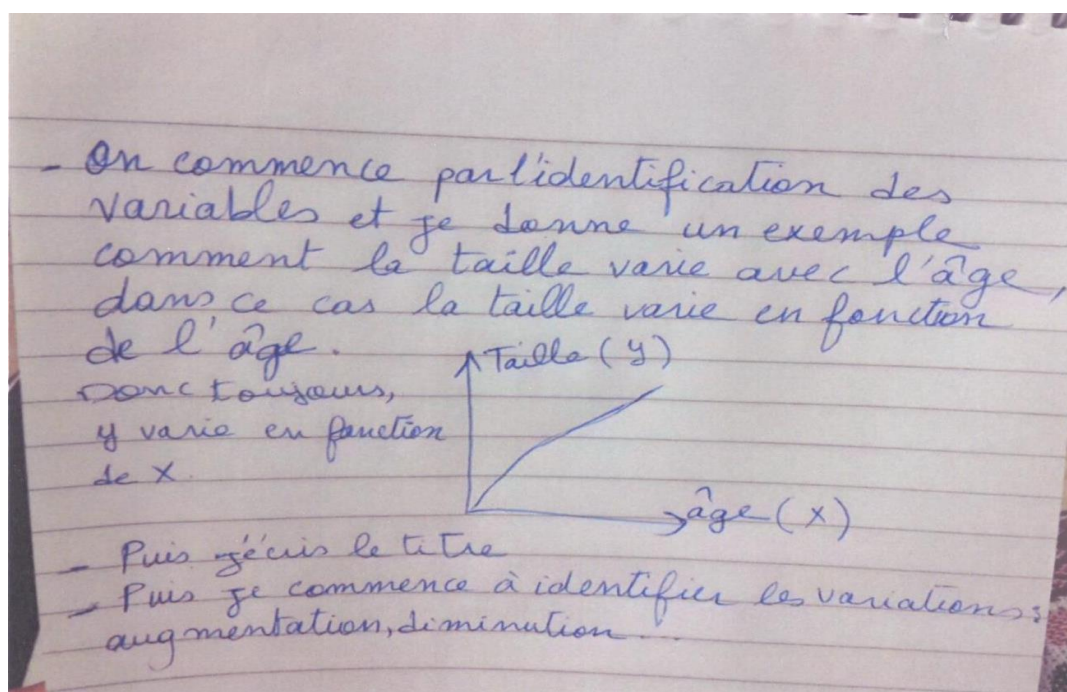 - On commence par l'identification des
variables et je donne un exemple
comment la taille varie avec l'âge,
dans ce cas la taille varie en fonction
de l'âge.
Taille (y)
Donc toujours,
y varie en fonction
de x.
âge (x)
- Puis j'écris le titre
- Puis je commence à identifier les variations:
augmentation, diminution...